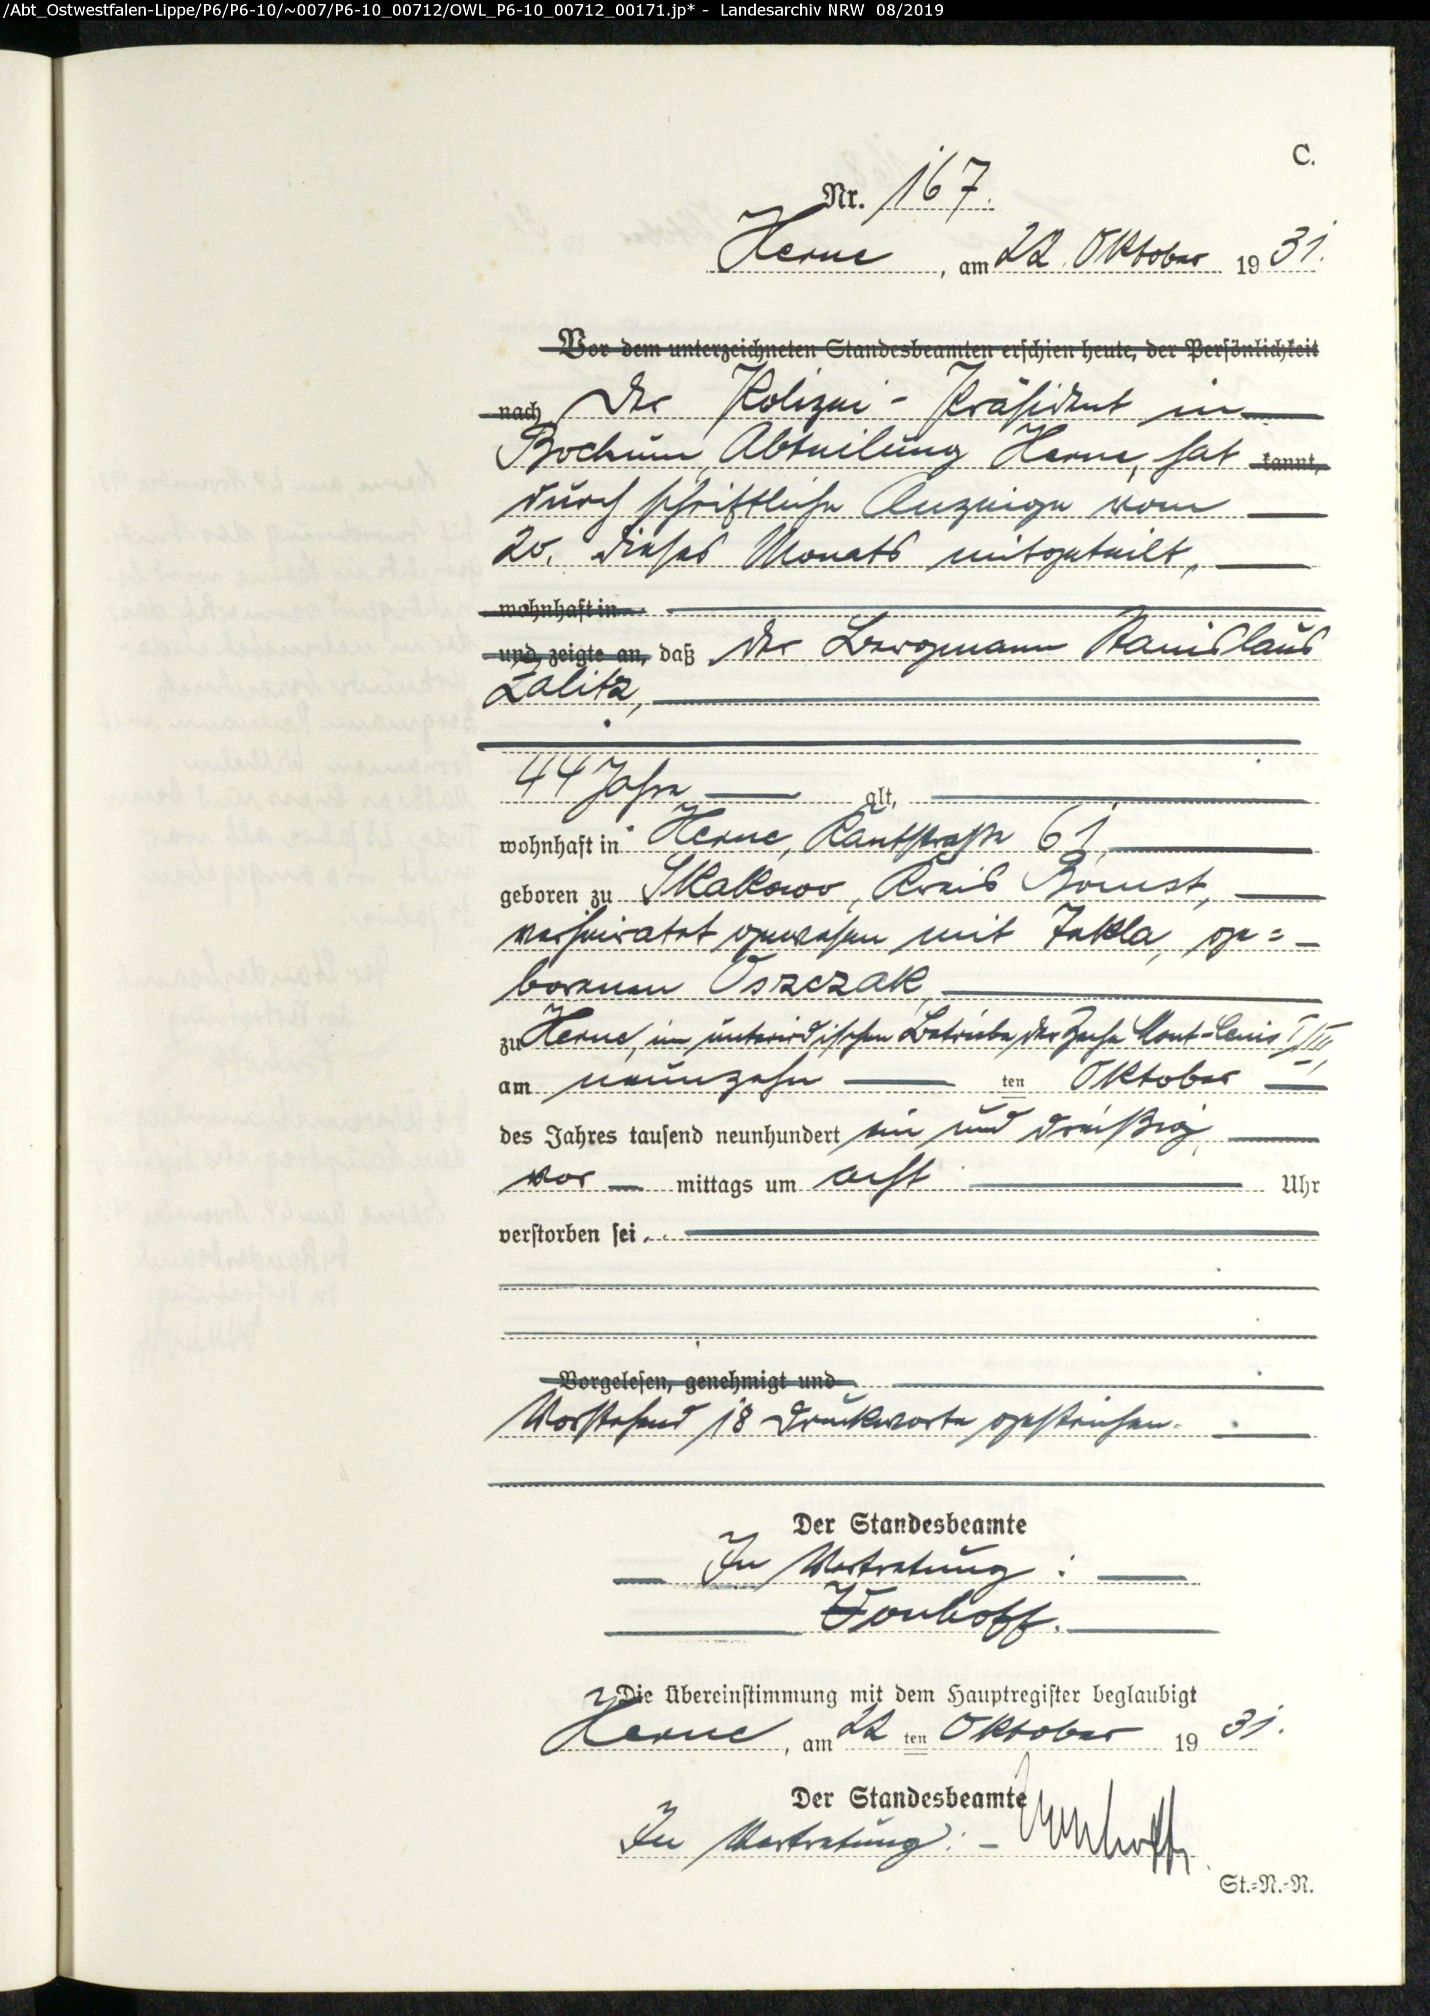 /Abt_Ostwestfalen-Lippe/P6/P6-10/~007/P6-10_00712/OWL_P6-10_00712_00171.jp* - Landesarchiv NRW 08/2019
C.
Nr. 167.
Herne, am 22. Oktober 1931.
Vor dem unterzeichneten Standesbeamten erschien heute, der Persönlichkeit
nach Der Polizei-Präsident in
Bochum, Abteilung Herne, hat kannt,
durch schriftliche Anzeige vom
20. dieses Monats mitgeteilt,
wohnhaft in
und zeigte an, daß der Bergmann Stanislaus
Zalitz,
44 Jahre alt,
wohnhaft in Herne, Kantstraße 61,
geboren zu Skakowo, Kreis Bomst,
verheiratet gewesen mit Tekla, ge=
borenen Oszczak,
zu Herne, im unterirdischen Betriebe der Zeche Mont-Cenis I/III,
am neunzehn ten Oktober
des Jahres tausend neunhundert ein und dreißig,
vor mittags um acht Uhr
verstorben sei.
Vorgelesen, genehmigt und
Vorstehend 18 Druckworte gestrichen.
Der Standesbeamte
In Vertretung:
Vonhoff.
Die Übereinstimmung mit dem Hauptregister beglaubigt
Herne, am 22 ten Oktober 1931.
Der Standesbeamte
In Vertretung: Vonhoff.
St.=N.=R.